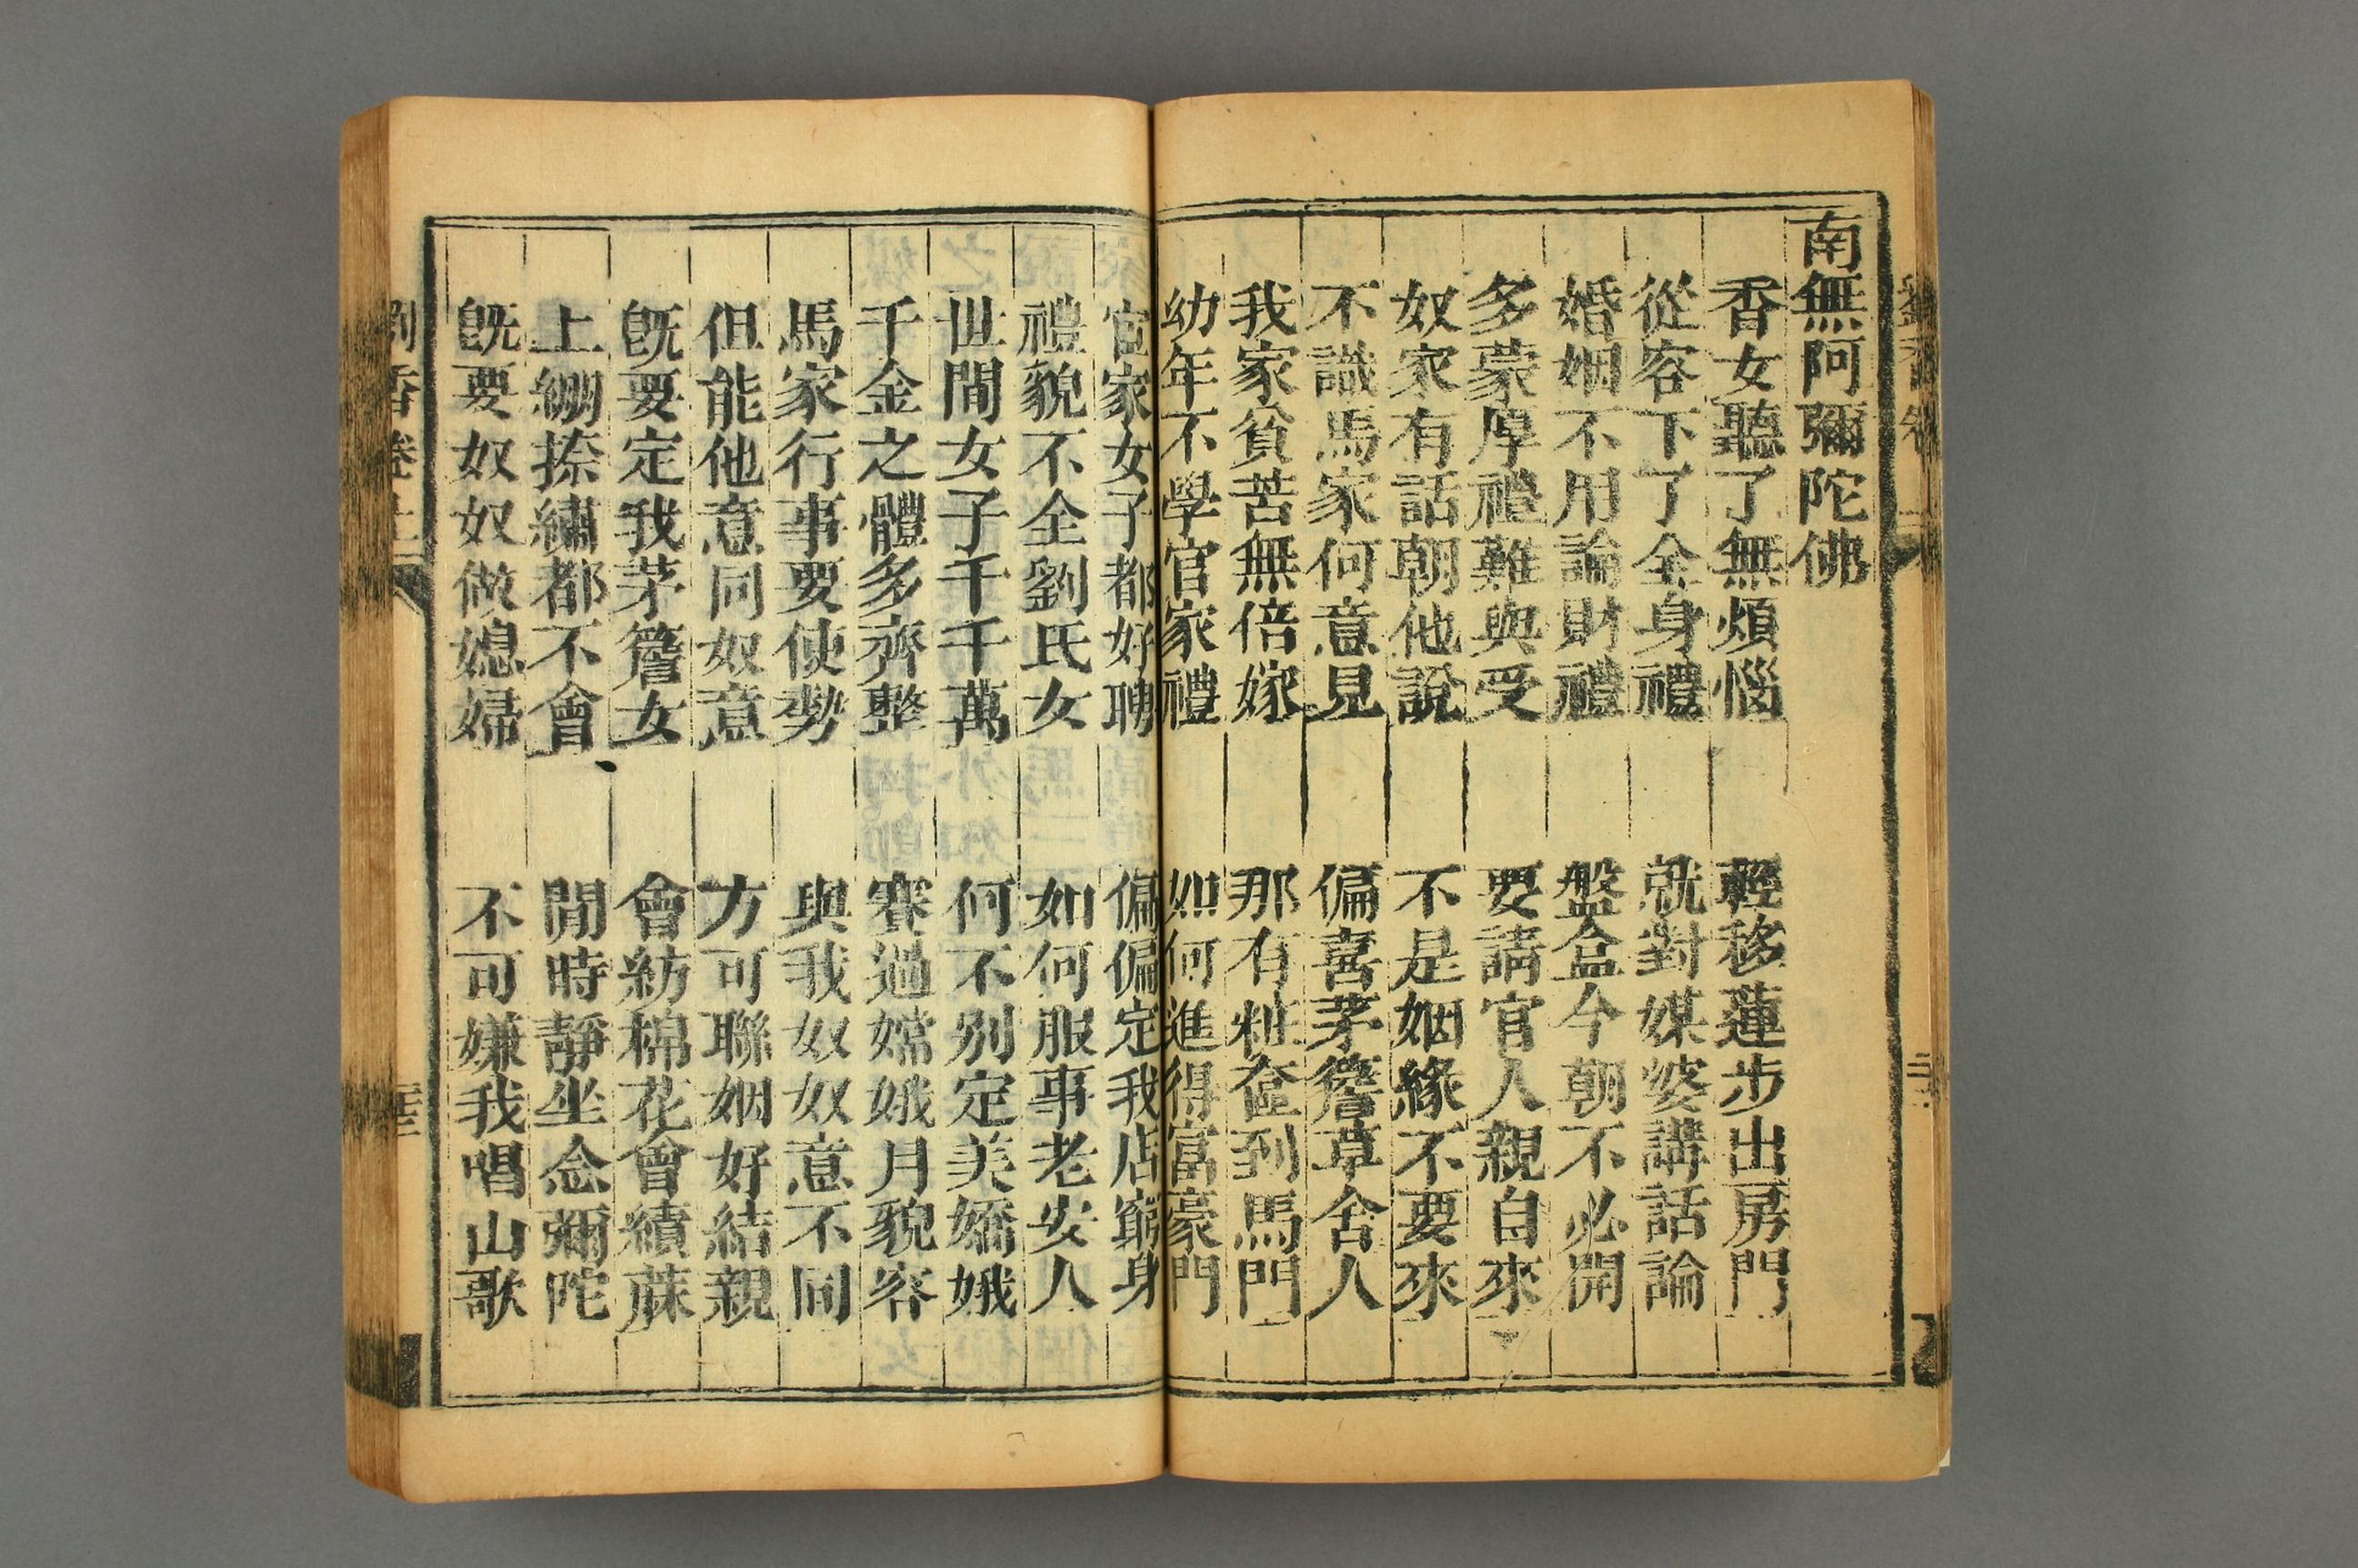 南無阿彌陀佛
香女聽了無煩惱　輕移蓮步出房門
從容下了全身禮　就對媒婆講話論
婚姻不用論財禮　盤盒今朝不必開
多蒙厚禮難與受　要請官人親自來
奴家有話朝他說　不是姻緣不要來
不識馬家何意見　偏喜茅簷草舍人
我家貧苦無倍嫁　那有粧奩到馬門
幼年不學官家禮　如何進得富豪門
官家女子都好聘　偏偏定我店窮身
禮貌不全劉氏女　如何服事老安人
世間女子千千萬　何不別定美嬌娥
千金之體多齊整　賽過嫦娥月貌容
馬家行事要使勢　與我奴奴意不同
但能他意同奴意　方可聯姻好結親
既要定我茅簷女　會紡棉花會績蔴
上綳捺繡都不會　閒時靜坐念彌陀
既要奴奴做媳婦　不可嫌我唱山歌
劉香卷上